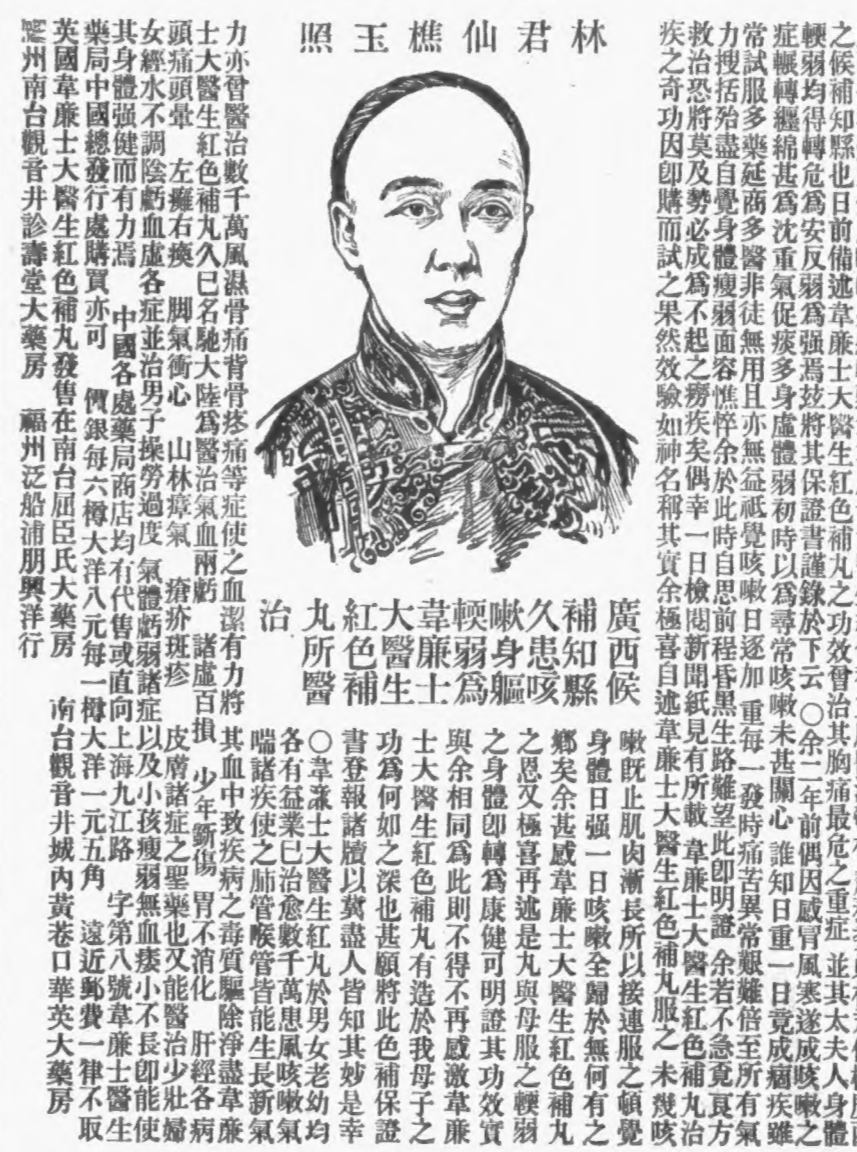 林君仙樵玉照
之候補知縣也日前備述韋廉士大醫生紅色補丸之功效曾治其胸痛最危之重症 並其太夫人身體
輭弱均得轉危爲安反弱爲强焉茲將其保證書謹錄於下云 〇余二年前偶因感冒風寒遂成咳嗽之
症輾轉纏綿甚爲沈重氣促痰多身虛體弱初時以爲尋常咳嗽未甚關心 誰知日重一日竟成痼疾雖
常試服多藥延商多醫非徒無用且亦無益祗覺咳嗽日逐加 重每一發時痛苦異常艱難倍至所有氣
力搜括殆盡自覺身體瘦弱面容憔悴余於此時自思前程昏黑生路難望此卽明證 余若不急覓良方
救治恐將莫及勢必成爲不起之癆疾矣偶幸一日檢閱新聞紙見有所載 韋廉士大醫生紅色補丸治
疾之奇功因卽購而試之果然效驗如神名稱其實余極喜自述韋廉士大醫生紅色補丸服之 未幾咳
廣西候
補知縣
久患咳
嗽身軀
輭弱爲
韋廉士
大醫生
紅色補
丸所醫
治
嗽旣止肌肉漸長所以接連服之頓覺
身體日强一日咳嗽全歸於無何有之
鄉矣余甚感韋廉士大醫生紅色補丸
之恩又極喜再述是丸與母服之輭弱
之身體卽轉爲康健可明證其功效實
與余相同爲此則不得不再感激韋廉
士大醫生紅色補丸有造於我母子之
功爲何如之深也甚願將此色補保證
書登報諸牘以冀盡人皆知其妙是幸
〇韋廉士大醫生紅丸於男女老幼均
各有益業已治愈數千萬患風咳嗽氣
喘諸疾使之肺管喉管皆能生長新氣
力亦曾醫治數千萬風濕骨痛背骨疼痛等症使之血潔有力將 其血中致疾病之毒質驅除淨盡韋廉
士大醫生紅色補丸久已名馳大陸爲醫治氣血兩虧 諸虛百損 少年斵傷 胃不消化 肝經各病
頭痛頭暈 左癱右瘓 脚氣衝心 山林瘴氣 瘡疥斑疹 皮膚諸症之聖藥也又能醫治少壯婦
女經水不調陰虧血虛各症並治男子操勞過度 氣體虧弱諸症以及小孩瘦弱無血痿小不長卽能使
其身體强健而有力焉 中國各處藥局商店均有代售或直向上海九江路 字第八號韋廉士醫生
藥局中國總發行處購買亦可 價銀每六樽大洋八元每一樽大洋一元五角 遠近郵費一律不取
英國韋廉士大醫生紅色補丸發售在南台屈臣氏大藥房 南台觀音井城內黃巷口華英大藥房
州南台觀音井診壽堂大藥房 福州泛船浦朋興洋行